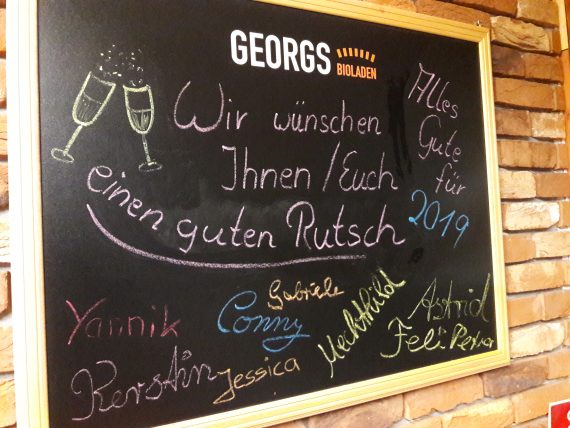 GEORGS
BIOLADEN
Wir wünschen
Ihnen/Euch
einen guten Rutsch
Alles
Gute
für
2019
Yannik
Gabriele
Conny
Kerstin
Jessica
Mechthild
Astrid
Feli